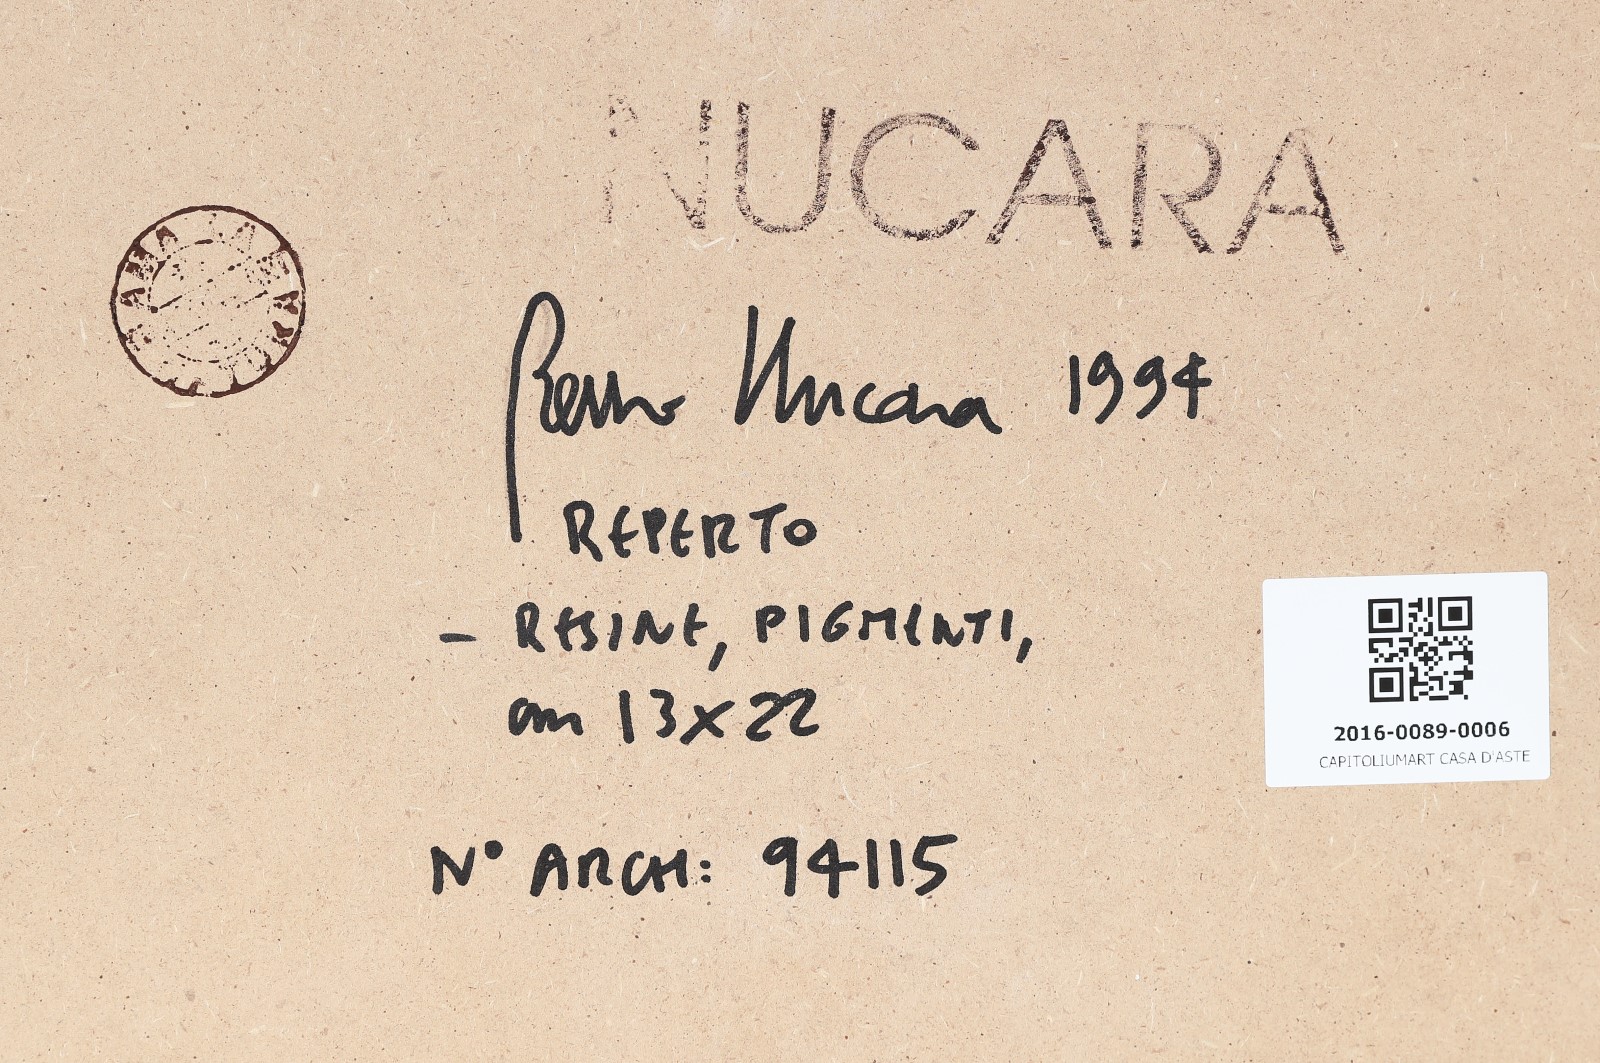 NUCARA
Nucara 1994
REPERTO
- RESINE, PIGMENTI,
cm 13x22
N° ARCH: 94115
2016-0089-0006
CAPITOLIUMART CASA D'ASTE